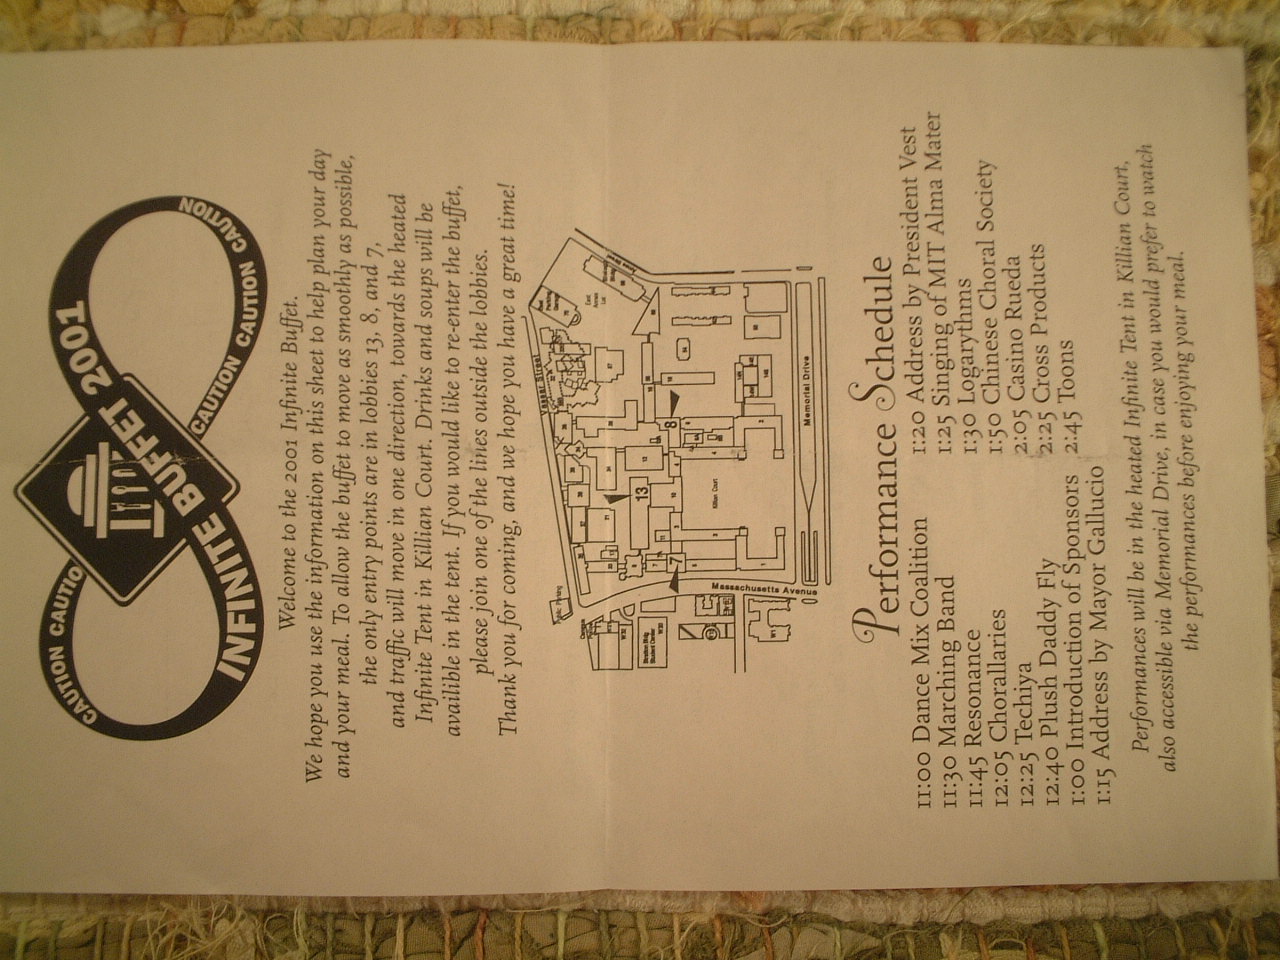 CAUTION CAUTIO
INFINITE BUFFET 2001
CAUTION CAUTION CAUTION
Welcome to the 2001 Infinite Buffet.
We hope you use the information on this sheet to help plan your day
and your meal. To allow the buffet to move as smoothly as possible,
the only entry points are in lobbies 13, 8, and 7,
and traffic will move in one direction, towards the heated
Infinite Tent in Killian Court. Drinks and soups will be
availible in the tent. If you would like to re-enter the buffet,
please join one of the lines outside the lobbies.
Thank you for coming, and we hope you have a great time!
Vassar Street
13
8
7
Killian Court
Massachusetts Avenue
Memorial Drive
Stratton Bldg.
Student Center
W1
Performance Schedule
11:00 Dance Mix Coalition
11:30 Marching Band
11:45 Resonance
12:05 Chorallaries
12:25 Techiya
12:40 Plush Daddy Fly
1:00 Introduction of Sponsors
1:15 Address by Mayor Gallucio
1:20 Address by President Vest
1:25 Singing of MIT Alma Mater
1:30 Logarythms
1:50 Chinese Choral Society
2:05 Casino Rueda
2:25 Cross Products
2:45 Toons
Performances will be in the heated Infinite Tent in Killian Court,
also accessible via Memorial Drive, in case you would prefer to watch
the performances before enjoying your meal.